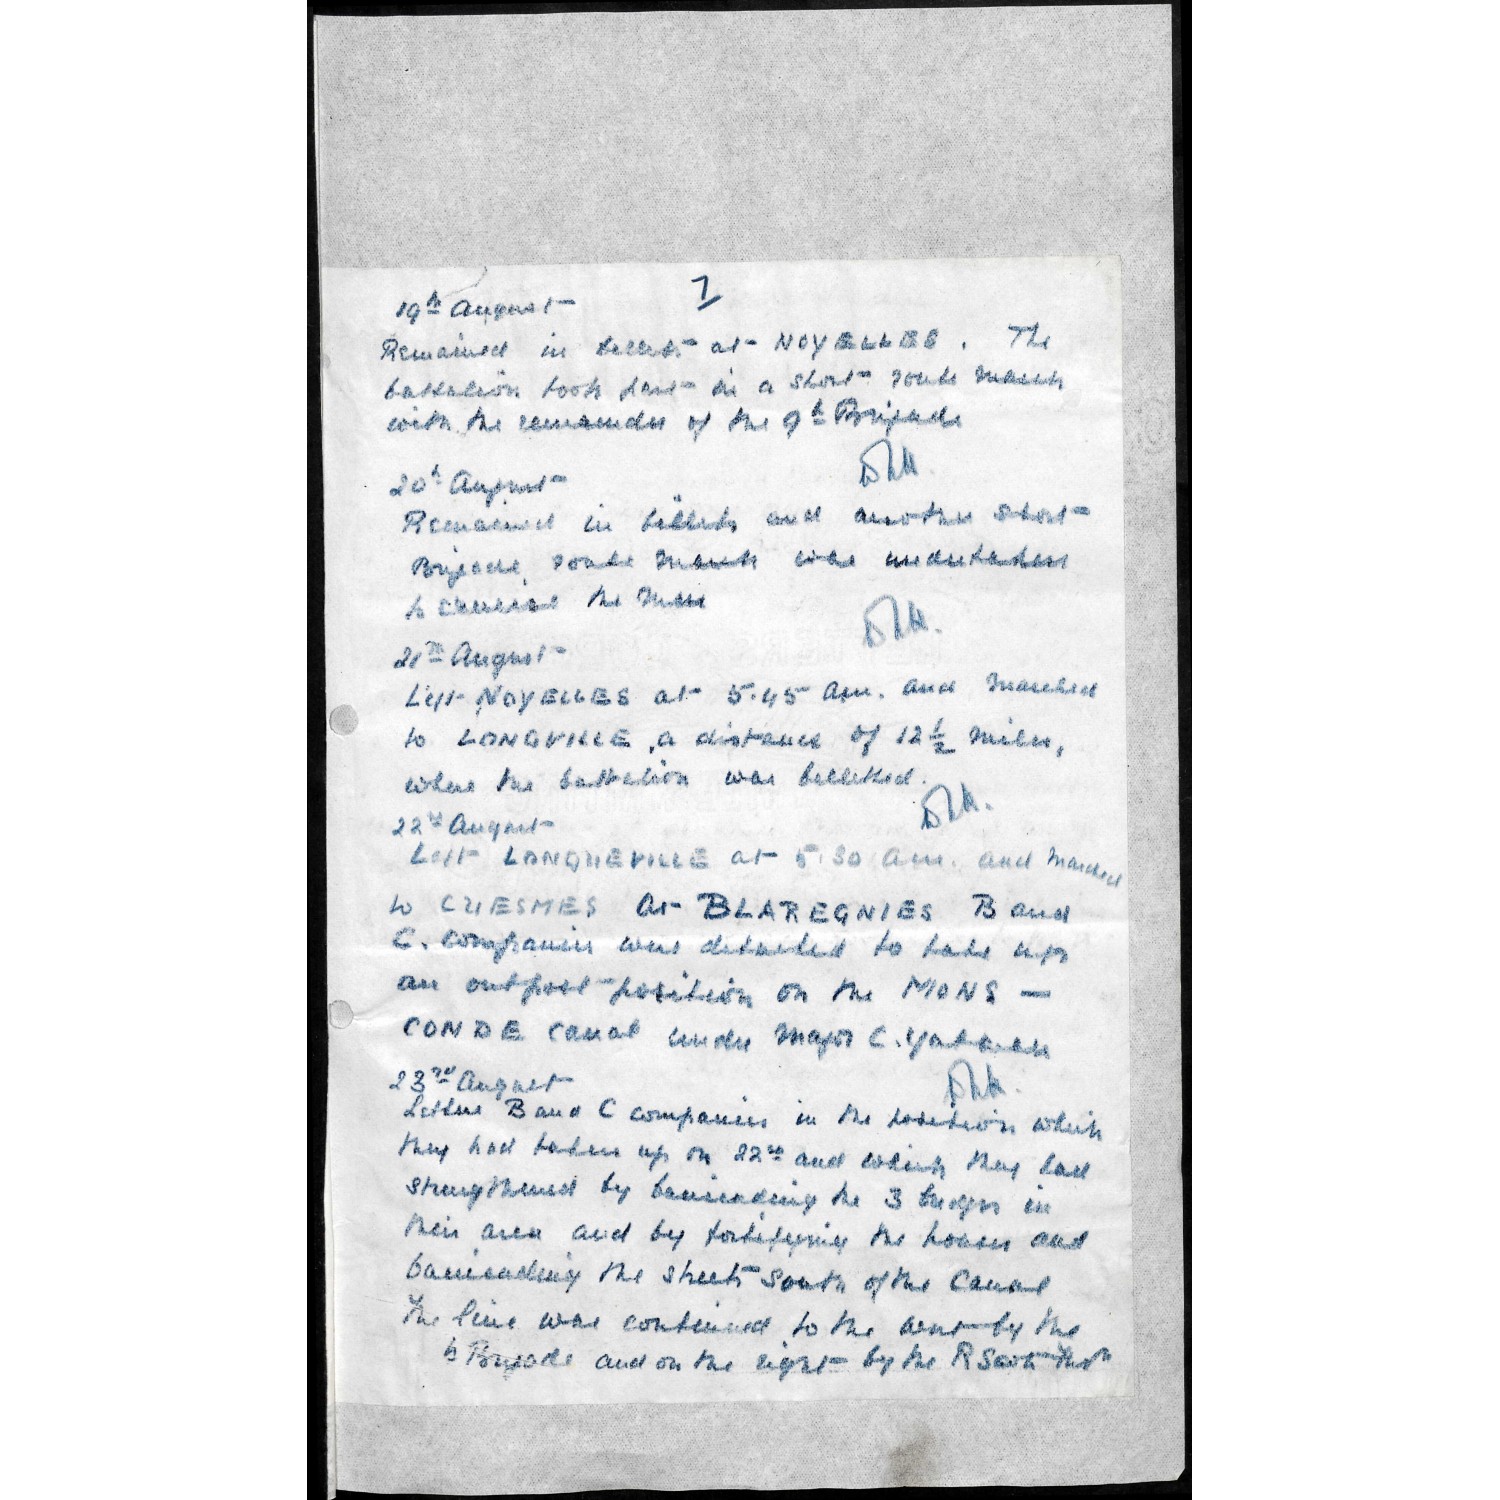 7
19th August
Remained in billets at NOYELLES. The
battalion took part in a short route march
with the remainder of the 9th Brigade
20th August
Remained in billets and another short
Brigade route march was undertaken
to exercise the men
21st August
Left NOYELLES at 5.45 am. and marched
to LONGVILLE, a distance of 12½ miles,
where the battalion was billetted.
22nd August
Left LONGUEVILLE at 5.30 am. and marched
to CUESMES At BLAREGNIES B and
C. companies were detached to take up
an outpost position on the MONS —
CONDE canal under Major C. Yatman
23rd August
B and C companies in the position which
they had taken up on 22nd and which they had
strengthened by barricading the 3 bridges in
their area and by fortifying the houses and
barricading the streets South of the Canal
The line was continued to the west by the
Brigade and on the right by the R Scots